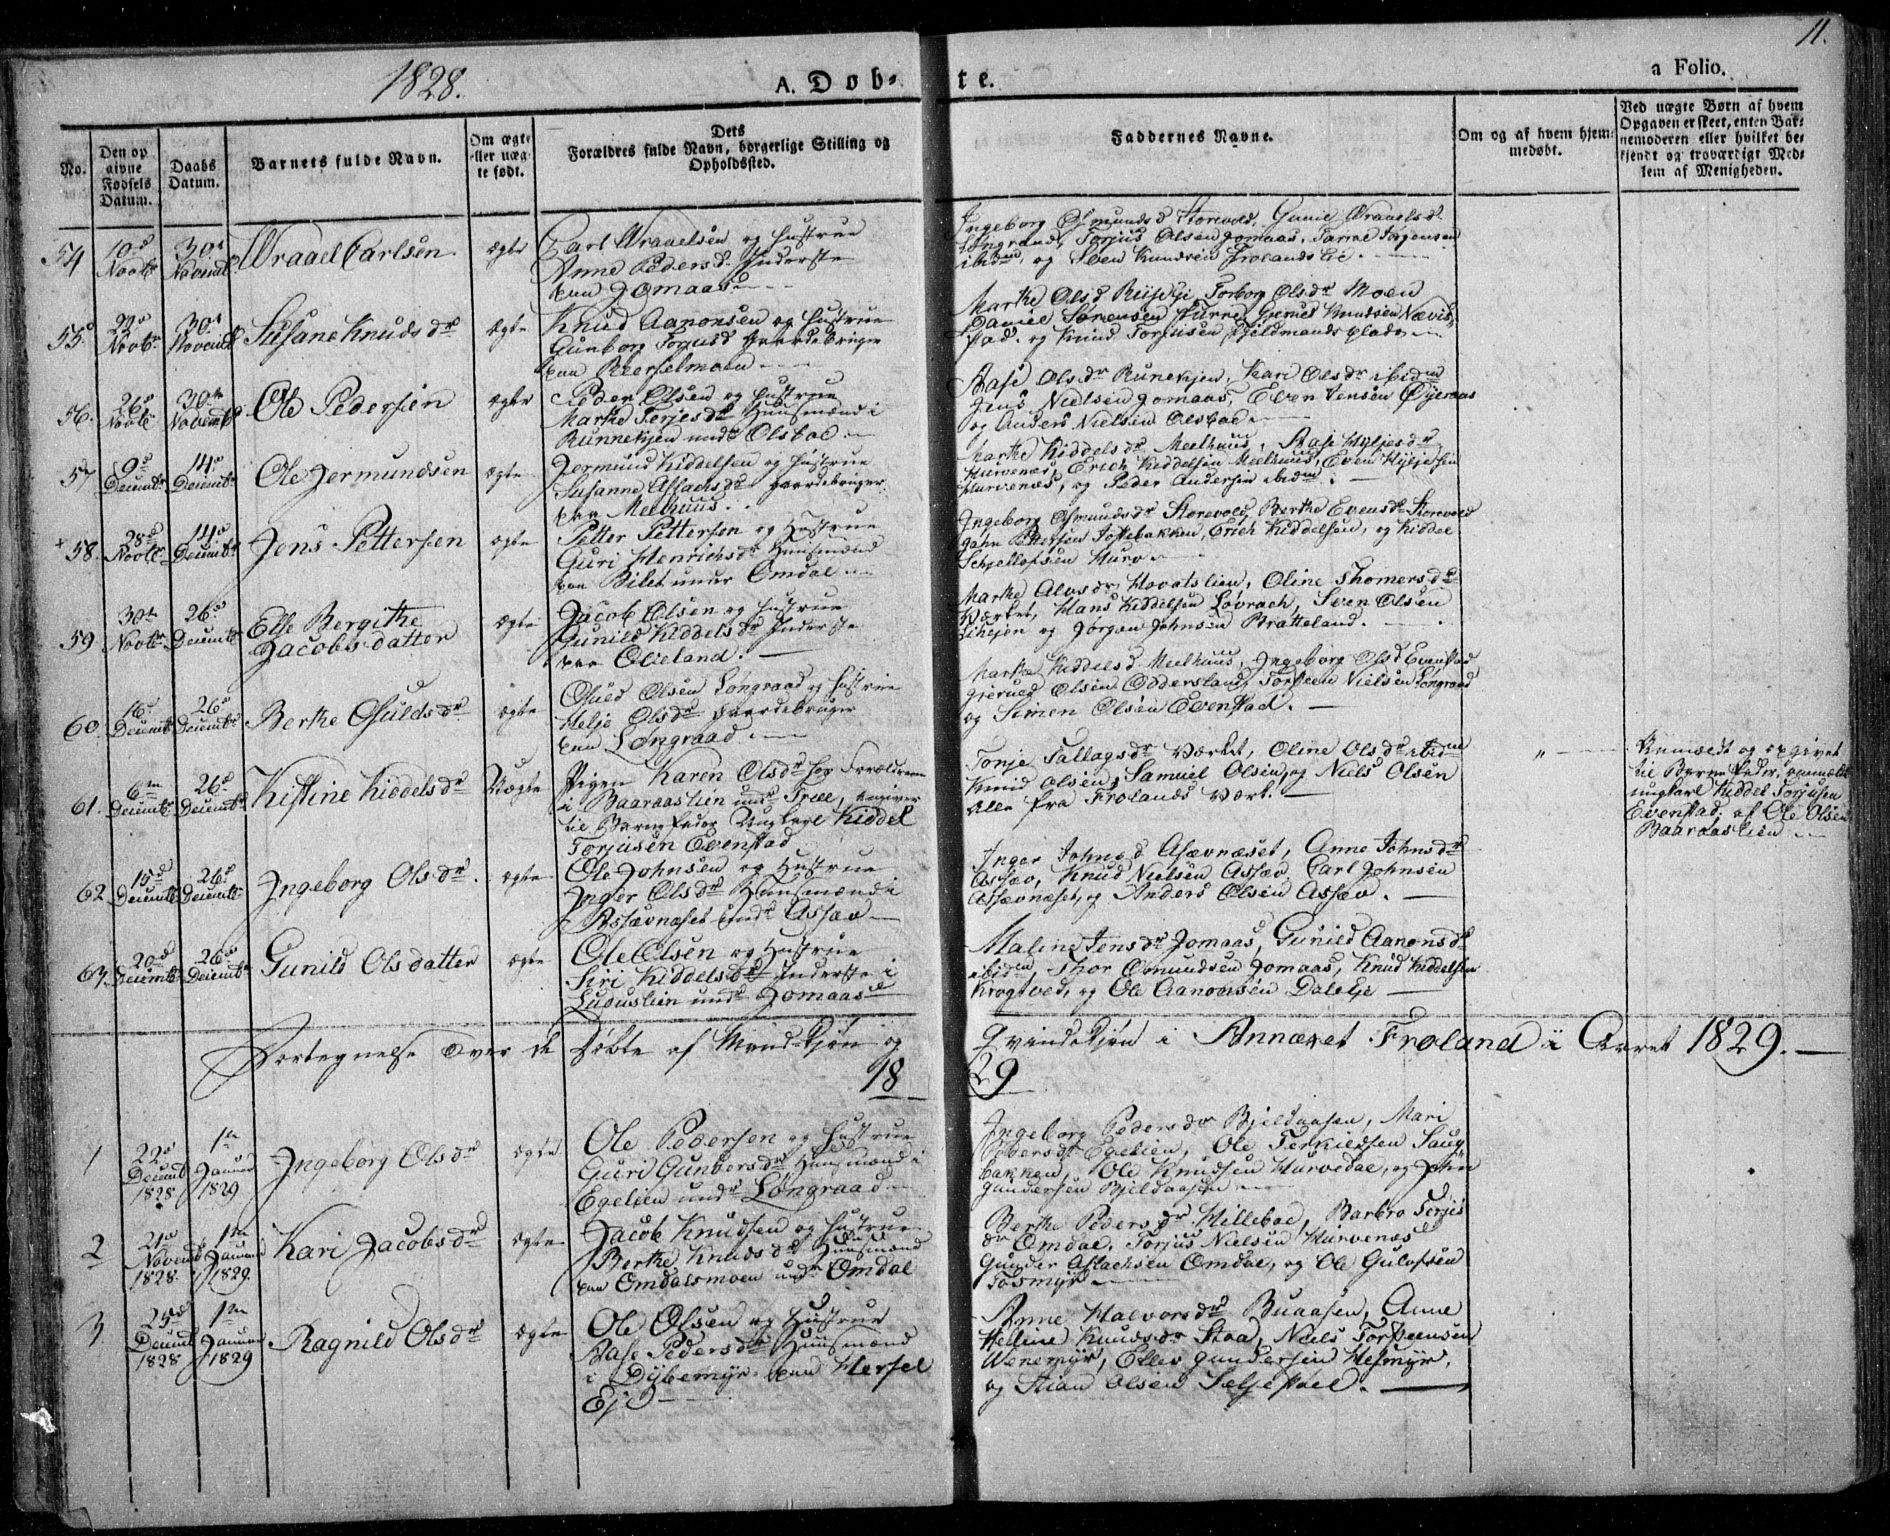 1828.
A. Døb-
te.
a Folio.
11.
No.
Den op
givne
Fødsels
Datum.
Daabs
Datum.
Barnets fulde Navn.
Om ægte
eller uæg-
te født.
Dets
Forældres fulde Navn, borgerlige Stilling og
Opholdssted.
Faddernes Navne.
Om og af hvem hjem-
medøbt.
Ved uægte Børn af hvem
Opgaven er skeet, enten Bar-
nemoderen eller hvilket be-
kjendt og troværdigt Med-
lem af Menigheden.
54
10d
Novbr
30te
Novembr
Wraael Carlsen
ægte
Carl Wraaelsen og Hustrue
Anne Pedersd. Inderste
paa Jomaas
Ingeborg Osmundsd Storevold, Gunne Wraaelsd
Longraad, Torjus Olsen Jomaas, Tarine Jørgensen
ibidm, og Sven Knudsen Frolands Eie.
55
Novbr
30te
Novembr
Susane Knudsdr
ægte
Knud Aanonsen og Hustrue
Gunborg Torjusd Gaardebruger
paa Reerselmoen
Marthe Olsd Torborg Olsdr Moen
Daniel Sørensen Furre, Knudsen Nævis-
stad, og Knud Torjusen Skjeldmandsplads
56.
26d
Novbr
30te
Novembr
Ole Pedersen
ægte
Peder Olsen og Hustrue
Marthe Terjesdr Huusmænd i
Runnekjen undr Olsboe
Aase Olsdr Runekjen, Kari Olsdr ibidm
Jens Nielsen Jomaas, Even Jensen Øyeraas
og Anders Nielsen Olsboe
57
9d
Decembr
14d
Decembr
Ole Jermundsen
ægte
Jermund Kiddelsen og Hustrue
Susanne Aslachsdr Gaardebruger
paa Meelhuus.
Marthe Kiddelsdr Meelhuus, Aase Hyljesdr
Hurvenæs, Erich Kiddelsen Meelhuus, Even Hyljesen
Hurvenæs, og Peder Andersen ibidm.
+
58.
28d
Novbr
14d
Decembr
Jens Pettersen
ægte
Petter Pettersen og Hustrue
Guri Henrichsdr Huusmænd
paa Bilet under Omdal
Ingeborg Osmundsdr Storevold, Berthe Evensdr Storevold
John Pettersen Erich Kiddelsen, og Kiddel
Schjellofsen Hurv
59
30te
Novbr
26d
Decembr
Else Bergithe
Jacobsdatter
ægte
Jacob Olsen og Hustrue
Gunild Kiddelsdr Inderste
paa Olieland.
Marthe Alvsdr Hovatslien, Oline Thomesdr
Værket, Hans Kiddelsen Løvrach, Sven Olsen
og Jørgen Johnsen Bratteland.
60.
16d
Decembr
26d
Decembr
Berthe Osuldsdr
ægte
Osuld Olsen Longraad og Hustrue
Helje Olsdr Gaardebruger
paa Longraad
Marthe Kiddelsd Meelhuus, Ingeborg Olsd Evenstad
Gjerued Olsen Oddersland, Torsteen Nielsen Longraad
og Simen Olsen Evenstad.
61.
6te
Decembr
26d
Decembr
Kistine Kiddelsdr
Uægte
Pigen Karen Olsdr hos Forældrene
i Baaraaslien undr Træe, angiver
til Barne Fader Ungkarl Kiddel
Torjusen Evenstad
Tonje Tallagsdr Værket, Oline Olsdr ibidm
Knud Olsen, Samuel Olsen, og Niels Olsen
Alle fra Frolands Værk.
"
Anmeldt og opgivet
til Barne Fader, anmeldt
ungkarl Kiddel Torjusen
Evenstad: af Ole Olsen
Baaraaslien
62
15d
Decembr
26d
Decembr
Ingeborg Olsdr.
ægte
Ole Johnsen og Hustrue
Inger Olsdr Huusmænd i
Assævnæset undr Assæv
Inger Johnsd Asævnæset, Anne Johnsdr
Assæv, Knud Nielsen Assæv, Carl Johnsen
Assævnæset, og Anders Olsen Assæv.
63.
20d
Decembr
26d
Decembr
Gunild Olsdatter
ægte
Ole Olsen og Hustrue
Siri Kiddelsdr Inderste i
undr Jomaas
Maline Jensdr Jomaas, Gunild Aanonsdr
ibidm, Thor Osmundsen Jomaas, Knud Kiddelsen
Krogtved, og Ole Aanonsen Dalelje
Fortegnelse over de Døbte af Mandkjøn og Qvindekjøn i Annexet Froland i Aaret 1829.
1829
1
22d
Decembr
1828.
1te
Januar
1829
Ingeborg Olsdr
ægte
Ole Pedersen og Hustrue
Guri Gunbersdr Huusmænd i
Egelien undr Longraad
Ingeborg Pedersdr Bjeldaasen, Mari
Pedersdr Egelien, Ole Terkildsen Saug
bakken, Ole Knudsen Hurvedal, og John
Gundersen Bjeldaasen
2
21d
Novembr
1828.
1te
Januar
1829.
Kari Jacobsdr
ægte
Jacob Knudsen og Hustrue
Berthe Knudsdr Huusmænd
paa Omdalsmoen undr Omdal
Berthe Pedersdr Hilleboe, Barbro Terjes
dr Omdal, Torjus Nielsen Hurvenæs
Gunder Aslachsen Omdal, og Ole Gulofsen
Tosmyr
3
25d
Decembr
1828
1te
Januar
1829
Ragnild Olsdr
ægte
Ole Olsen og Hustrue
Aase Pedersdr Huusmænd
i Dybemyr paa Hersel
Eje
Anne Halvorsdr Buaasen, Anne
Helline Knudsdr Stoa, Niels Torsteensen
Wenemyr, Ellev Gundersen Hesmyr,
og Stian Olsen Seljestoel.